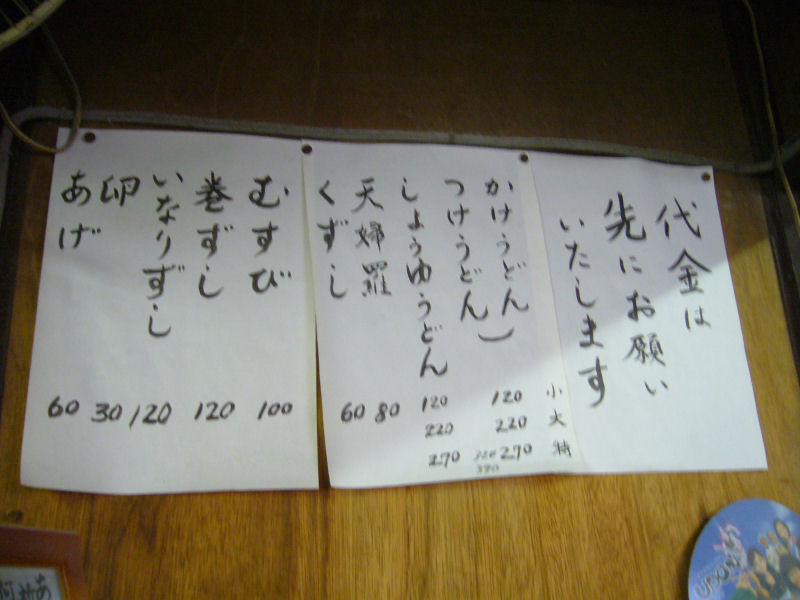 代金は
先にお願い
いたします
小 大 特
かけうどん
120 220 270
つけうどん
しょうゆうどん
120 220 270
天婦羅 80
くずし 60
むすび 100
巻ずし 120
いなりずし 120
卵 30
あげ 60